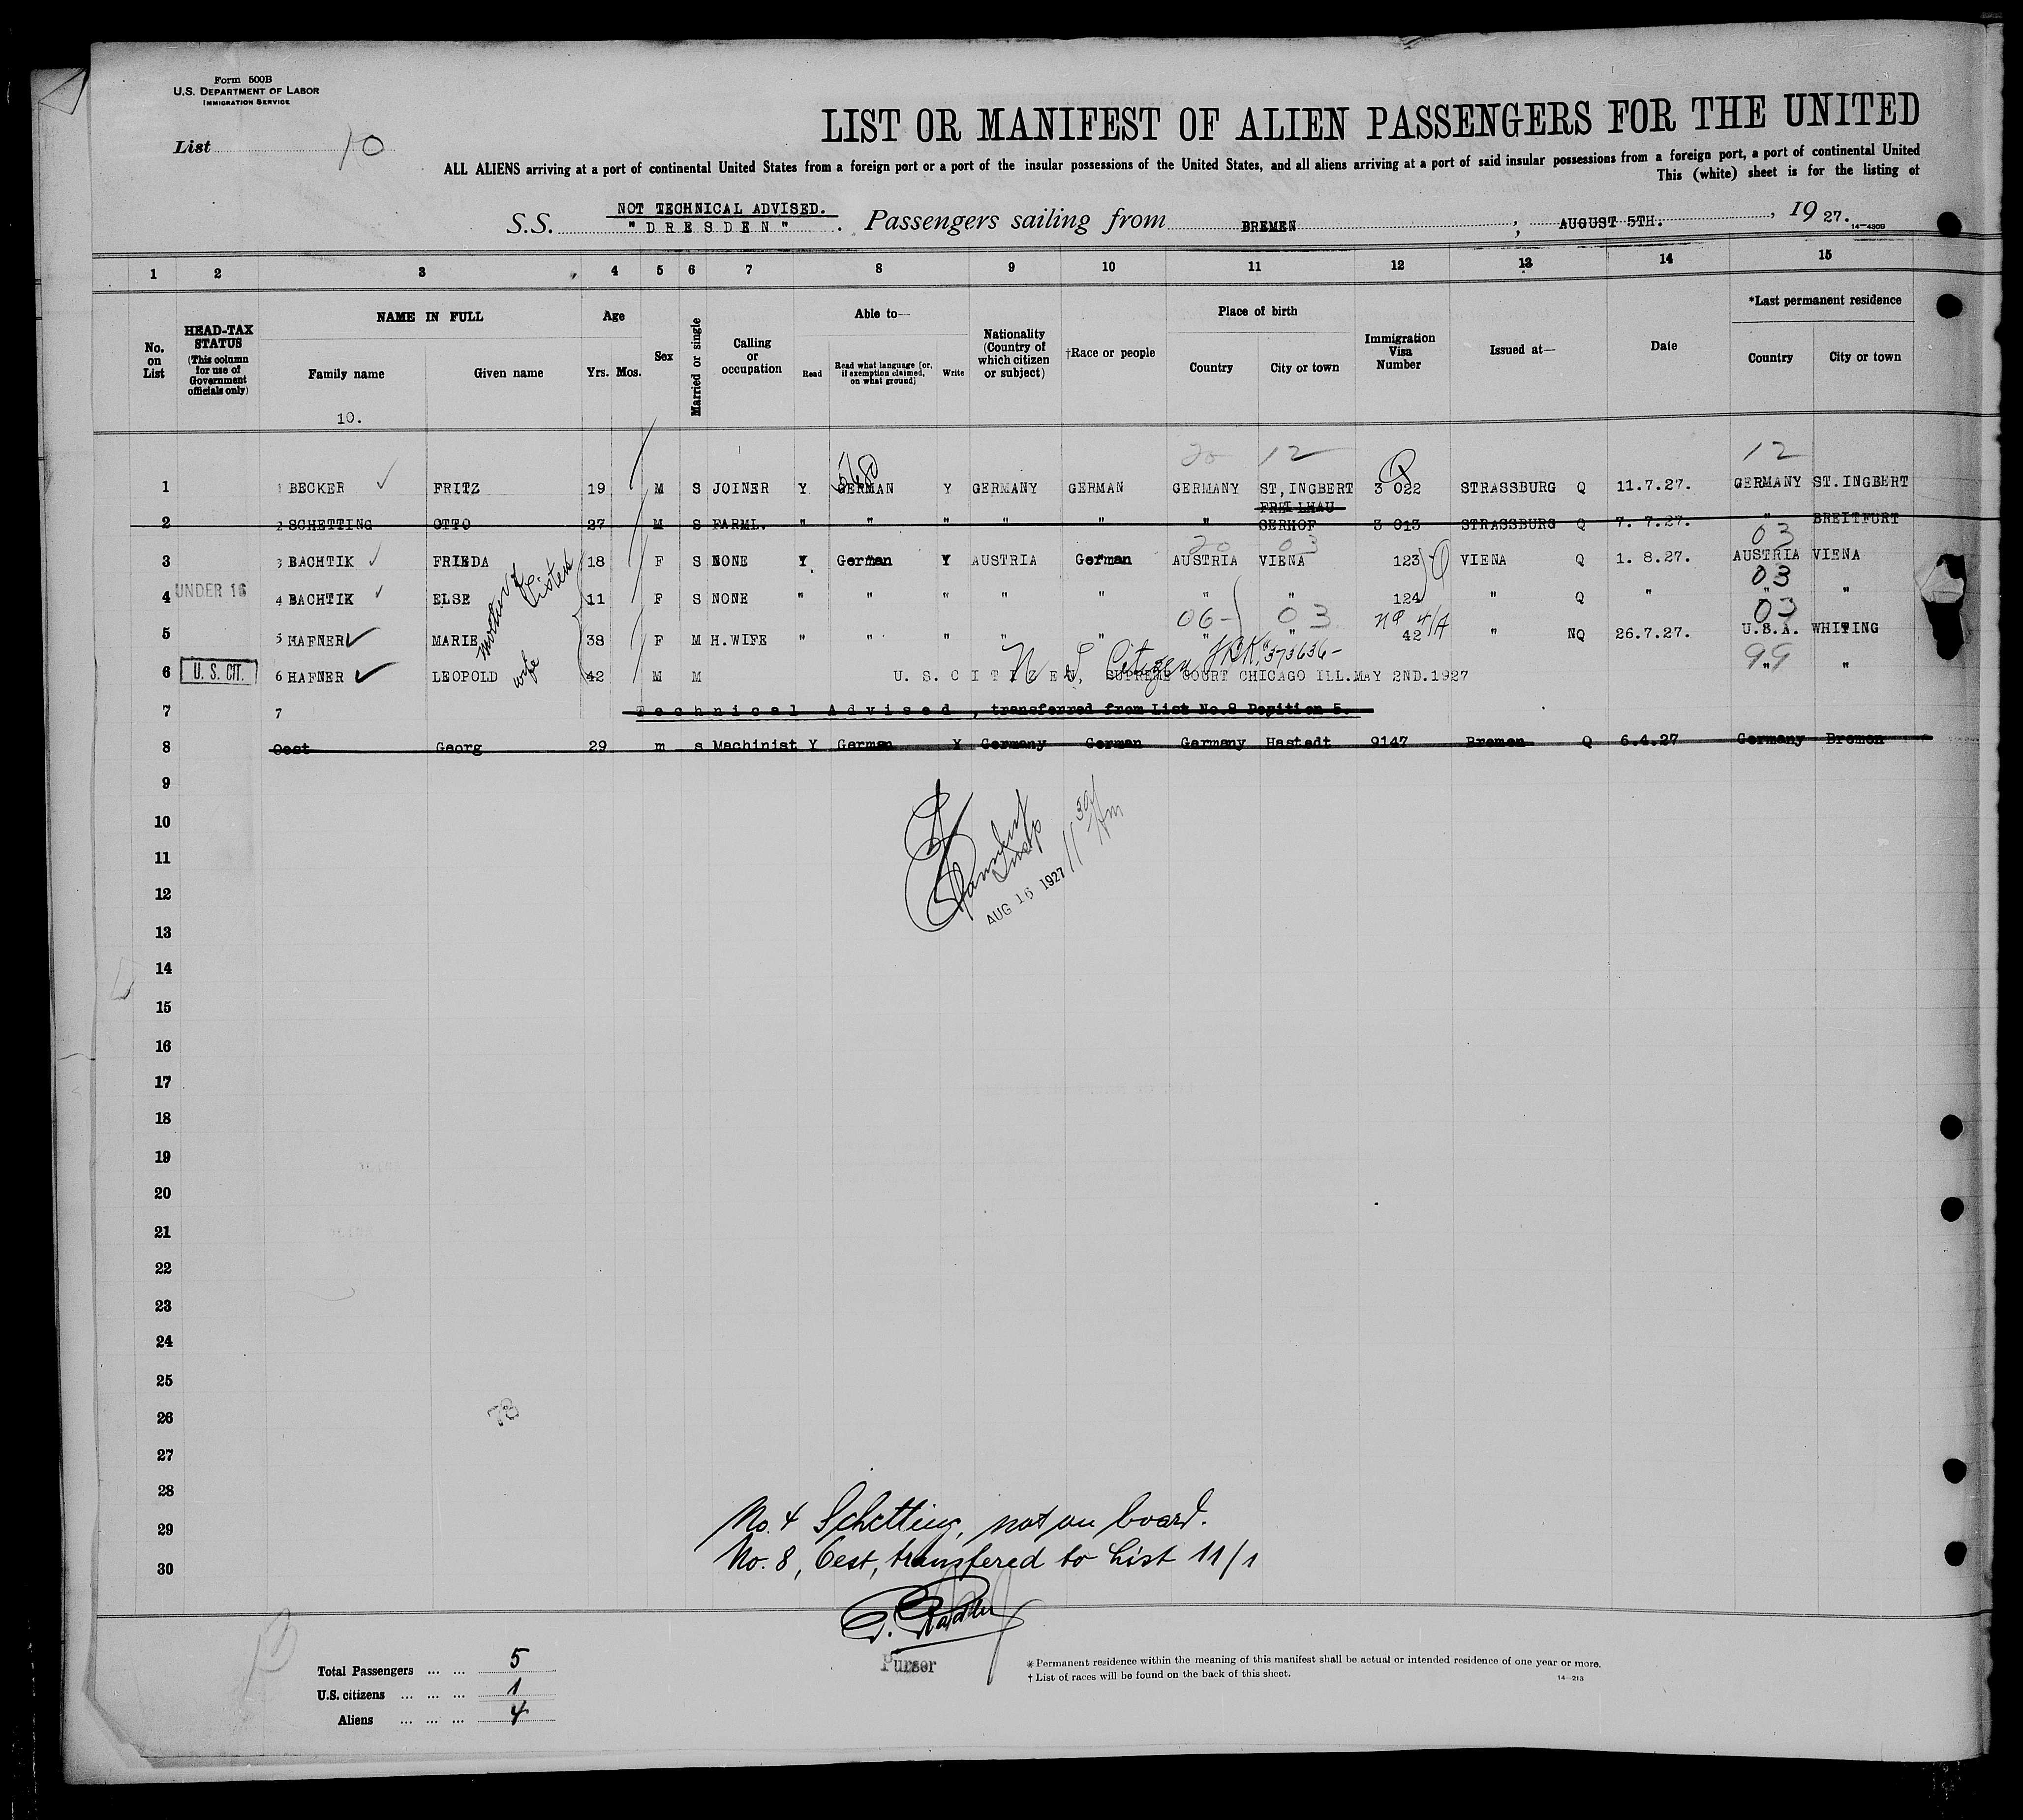 Form 500B
U.S. DEPARTMENT OF LABOR
IMMIGRATION SERVICE
List 10
LIST OR MANIFEST OF ALIEN PASSENGERS FOR THE UNITED
ALL ALIENS arriving at a port of continental United States from a foreign port or a port of the insular possessions of the United States, and all aliens arriving at a port of said insular possessions from a foreign port, a port of continental United
This (white) sheet is for the listing of
NOT TECHNICAL ADVISED.
S.S. "DRESDEN". Passengers sailing from BREMEN, AUGUST 5TH., 1927.
14-430B
1 2 3 4 5 6 7 8 9 10 11 12 13 14 15
No. on List
HEAD-TAX STATUS (This column for use of Government officials only)
NAME IN FULL
Family name Given name
10.
Age
Yrs. Mos.
Sex
Married or single
Calling or occupation
Able to—
Read Read what language [or, if exemption claimed, on what ground] Write
Nationality (Country of which citizen or subject)
†Race or people
Place of birth
Country City or town
Immigration Visa Number
Issued at—
Date
*Last permanent residence
Country City or town
20 12 Q 12
1 1 BECKER FRITZ 19 M S JOINER Y GERMAN Y GERMANY GERMAN GERMANY ST,INGBERT 3 022 STRASSBURG Q 11.7.27. GERMANY ST.INGBERT
2 2 SCHETTING OTTO 27 M S FARML. " " " " " " SERHOF 3 013 STRASSBURG Q 7. 7.27. " BREITFURT
20 03 03
3 3 BACHTIK FRIEDA 18 F S NONE Y German Y AUSTRIA German AUSTRIA VIENA 123 VIENA Q 1. 8.27. AUSTRIA VIENA
mother of sister
03
4 UNDER 16 4 BACHTIK ELSE 11 F S NONE " " " " " " " 124 " Q " " "
06- 03 NQ 4/A 03
5 5 HAFNER MARIE 38 F M H.WIFE " " " " " " " 42 " NQ 26.7.27. U.S.A. WHITING
373636- 99
6 U. S. CIT. 6 HAFNER LEOPOLD wife 42 M M U. S. CITIZEN, SUPREME COURT CHICAGO ILL.MAY 2ND.1927 " "
7 7 Technical Advised, transferred from List No.8 Position 5.
8 Oest Georg 29 m s Machinist Y German Y Germany German Germany Hastedt 9147 Bremen Q 6.4.27 Germany Bremen
9
10
11
12
13
14
15
16
17
18
19
20
21
22
23
24
25
26
27
28
29
30
Insp
AUG 16 1927 11 30 Am
78
No. 4 Schetting, not on board.
No. 8, Oest, transfered to List 11/1
Purser
Total Passengers ... ... 5
U.S. citizens ... ... ... 1
Aliens ... ... ... 4
*Permanent residence within the meaning of this manifest shall be actual or intended residence of one year or more.
†List of races will be found on the back of this sheet.
14-213